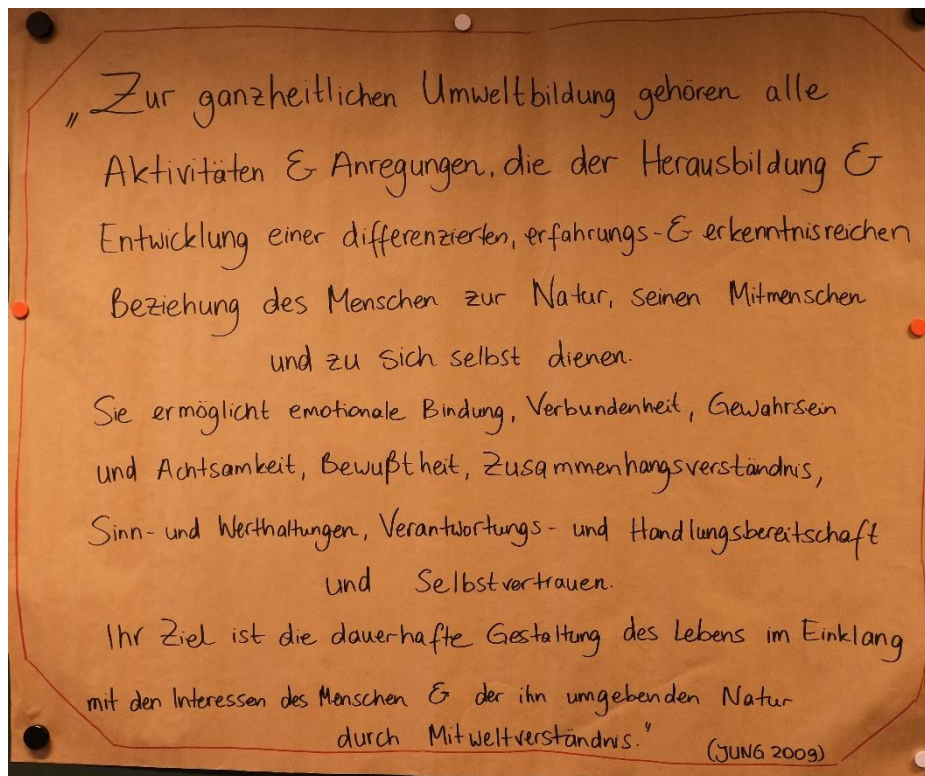 „Zur ganzheitlichen Umweltbildung gehören alle
Aktivitäten & Anregungen, die der Herausbildung &
Entwicklung einer differenzierten, erfahrungs- & erkenntnisreichen
Beziehung des Menschen zur Natur, seinen Mitmenschen
und zu sich selbst dienen.
Sie ermöglicht emotionale Bindung, Verbundenheit, Gewahrsein
und Achtsamkeit, Bewußtheit, Zusammenhangsverständnis,
Sinn- und Werthaltungen, Verantwortungs- und Handlungsbereitschaft
und Selbstvertrauen.
Ihr Ziel ist die dauerhafte Gestaltung des Lebens im Einklang
mit den Interessen des Menschen & der ihn umgebenden Natur
durch Mitweltverständnis."
(JUNG 2009)